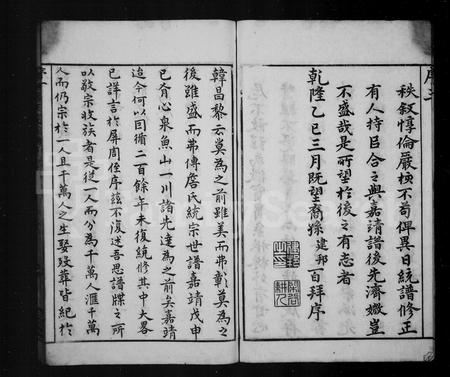 秩敘惇倫嚴核不苟俾異日統譜修正
有人持叵合之與嘉靖譜後先濟媺豈
不盛哉是所望於後之有志者
乾隆乙巳三月既望裔孫建邦百拜序
韓昌黎云莫為之前雖美而弗彰莫為之
後雖盛而弗傳詹氏統宗世譜嘉靖戊申
已肯心泉魚山一川諸先達為之前矣嘉靖
迨今何以因循二百餘年未復統修其中大畧
已詳言於屏周侄序茲不復述吾思譜牒之所
以敬宗收族者是從一人而分為千萬人滙千萬
人而仍宗於一人且千萬人之生娶歿葬皆紀於